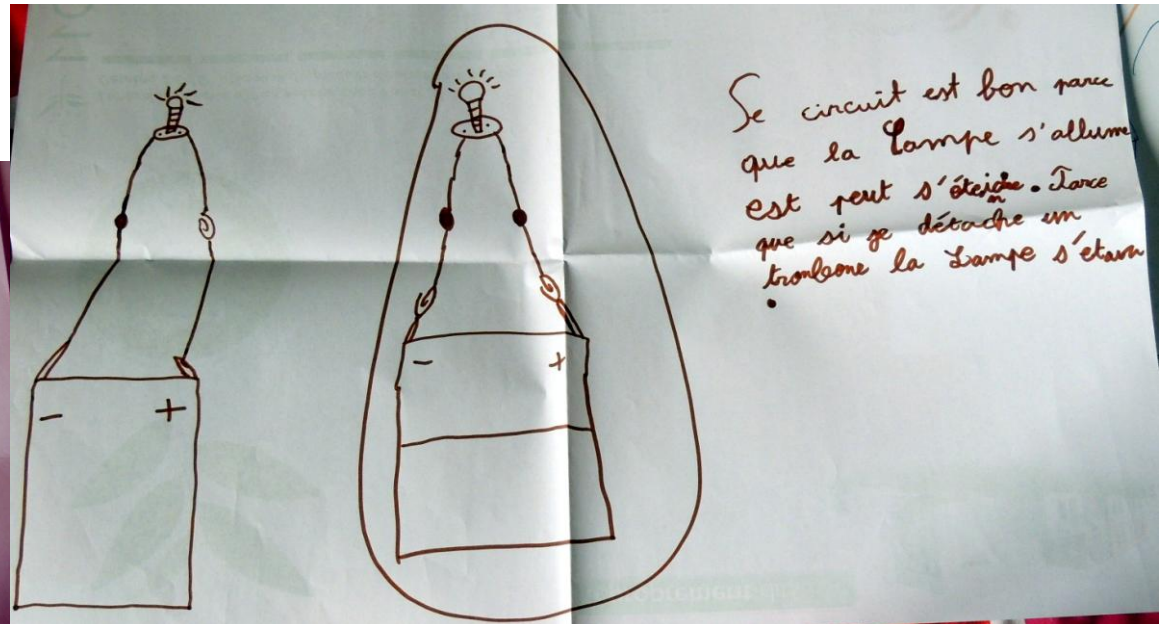 - +
- +
Se circuit est bon parce
que la Lampe s'allume
est peut s'éteindre. Parce
que si je détache un
trombone la Lampe s'étain
.